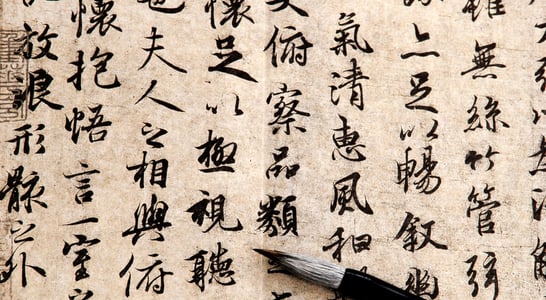 雖無絲竹管弦
亦足以暢叙幽
氣清惠風和
大俯察品類之
懷足以極視聽
也夫人之相與俯
懷抱悟言一室之
放浪形骸之外